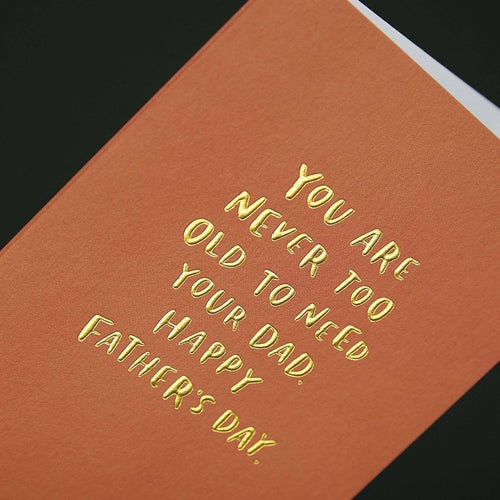 YOU ARE
NEVER TOO
OLD TO NEED
YOUR DAD.
HAPPY
FATHER'S DAY.